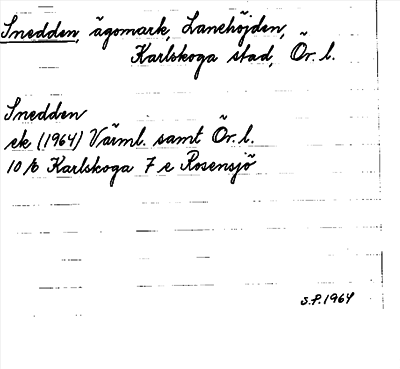 Snedden, ägomark, Lanehöjden,
Karlskoga stad, Ör. l.
Snedden
ek (1964) Värml. samt Ör. l.
10/6 Karlskoga 7 e Rosensjö
S.P. 1964